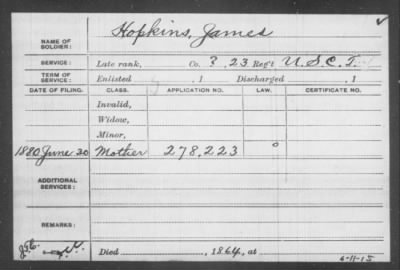 NAME OF SOLDIER: Hopkins, James
SERVICE: Late rank, Co. ?, 23 Reg't U.S.C.T.
TERM OF SERVICE: Enlisted , 1 Discharged , 1
DATE OF FILING. CLASS. APPLICATION NO. LAW. CERTIFICATE NO.
Invalid,
Widow,
Minor,
1880 June 30 Mother 278,223
ADDITIONAL SERVICES:
REMARKS:
Died , 1864, at
6-11-15